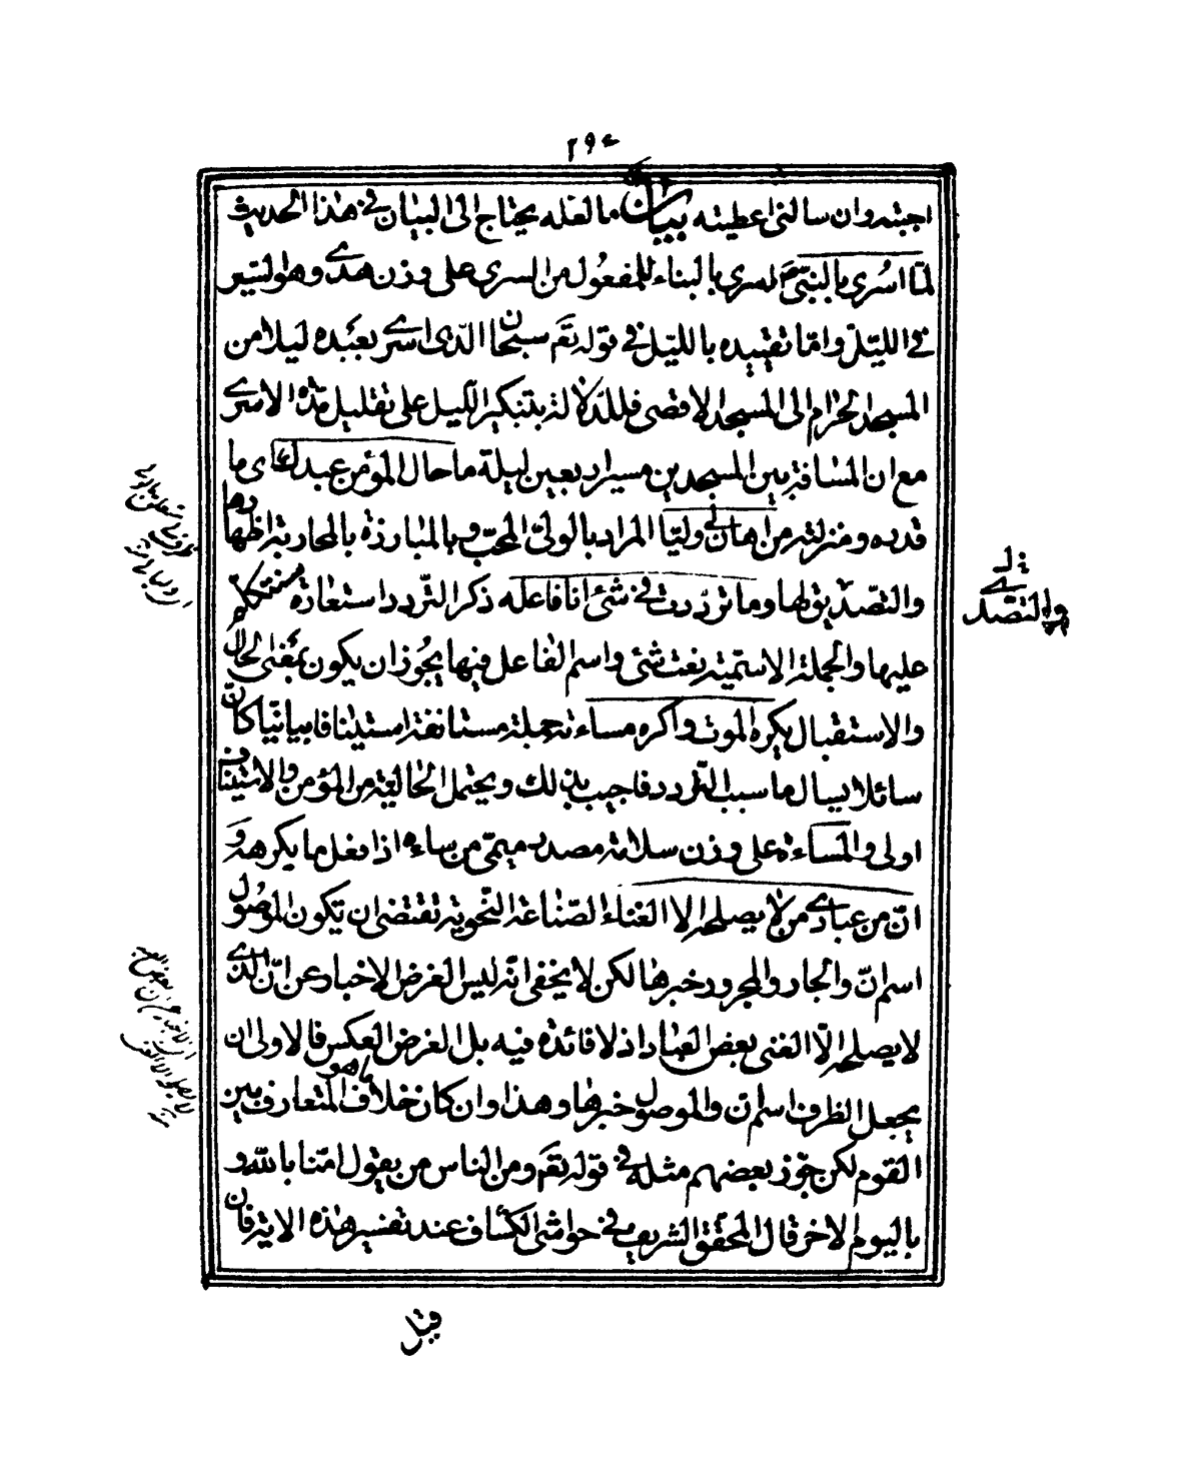 ٢٩٤
اجبته وان سالنی اعطیته بیان ما لعله یحتاج الی البیان فی هذا الحدیث
لمّا اُسری بالنبیّ ص اسری بالبناء للمفعول من السری علی وزن هدی وهو السّیر
فی اللیل وامّا تقییده باللیل فی قوله تع سبحان الّذی اسری بعبده لیلا من
المسجد الحرام الی المسجد الاقصی فللدّلالة بتنکیر اللیل علی تقلیل مدّة الاسری
مع ان المسافة بین المسجدین مسیر اربعین لیلة ما حال المؤمن عندک ای ما
قدره ومنزلته من اهان لی ولیّا المراد بالولیّ المحبّ وبالمبارزة بالمحاربة اظهارها
والتصدّی لها وما تردّدت فی شیٔ انا فاعله ذکر التّردد استعارة ستتکلم
علیها والجملة الاسمیّة نعت شیٔ واسم الفاعل فیها یجوز ان یکون بمعنی الحال
والاستقبال یکره الموت واکره مساءته جملة مستانفة استینافا بیانیّا کانّ
سائلا یسال ما سبب التردد فاجیب بذلک ویحتمل الحالیة من المؤمن والاستیناف
اولی والمساءة علی وزن سلامة مصدر میمیّ من ساءه اذا فعل ما یکرهه و
انّ من عبادی من لا یصلحه الا الغناء الصّناعة النّحویة تقتضی ان یکون الموصول
اسم انّ والجار والمجرور خبرها لکن لا یخفی انّه لیس الغرض الاخبار عن انّ الذی
لا یصلحه الّا الغنی بعض العباد اذ لا فائدة فیه بل الغرض العکس فالاولی ان
یجعل الظرف اسم ان والموصول خبرها وهذا وان کان خلاف ما هو المتعارف بین
القوم لکن جوّز بعضهم مثله فی قوله تع ومن الناس من یقول امنّا بالله و
بالیوم الاخر قال المحقق الشریف فی حواشی الکشّاف عند تفسیر هذه الایة فان
والتصدّی
قیل